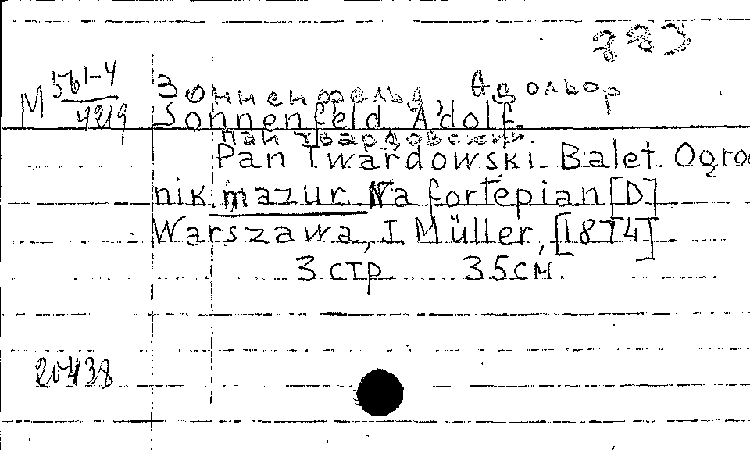 883
М 561-4
4219
Зонненфельд Адольф
Sonnenfeld Adolf.
Пан Твардовский.
Pan Twardowski. Balet. Ogro
nik. mazur. Na fortepian [D.]
Warszawa, I Müller, [1874]
3 стр 35 см.
20438